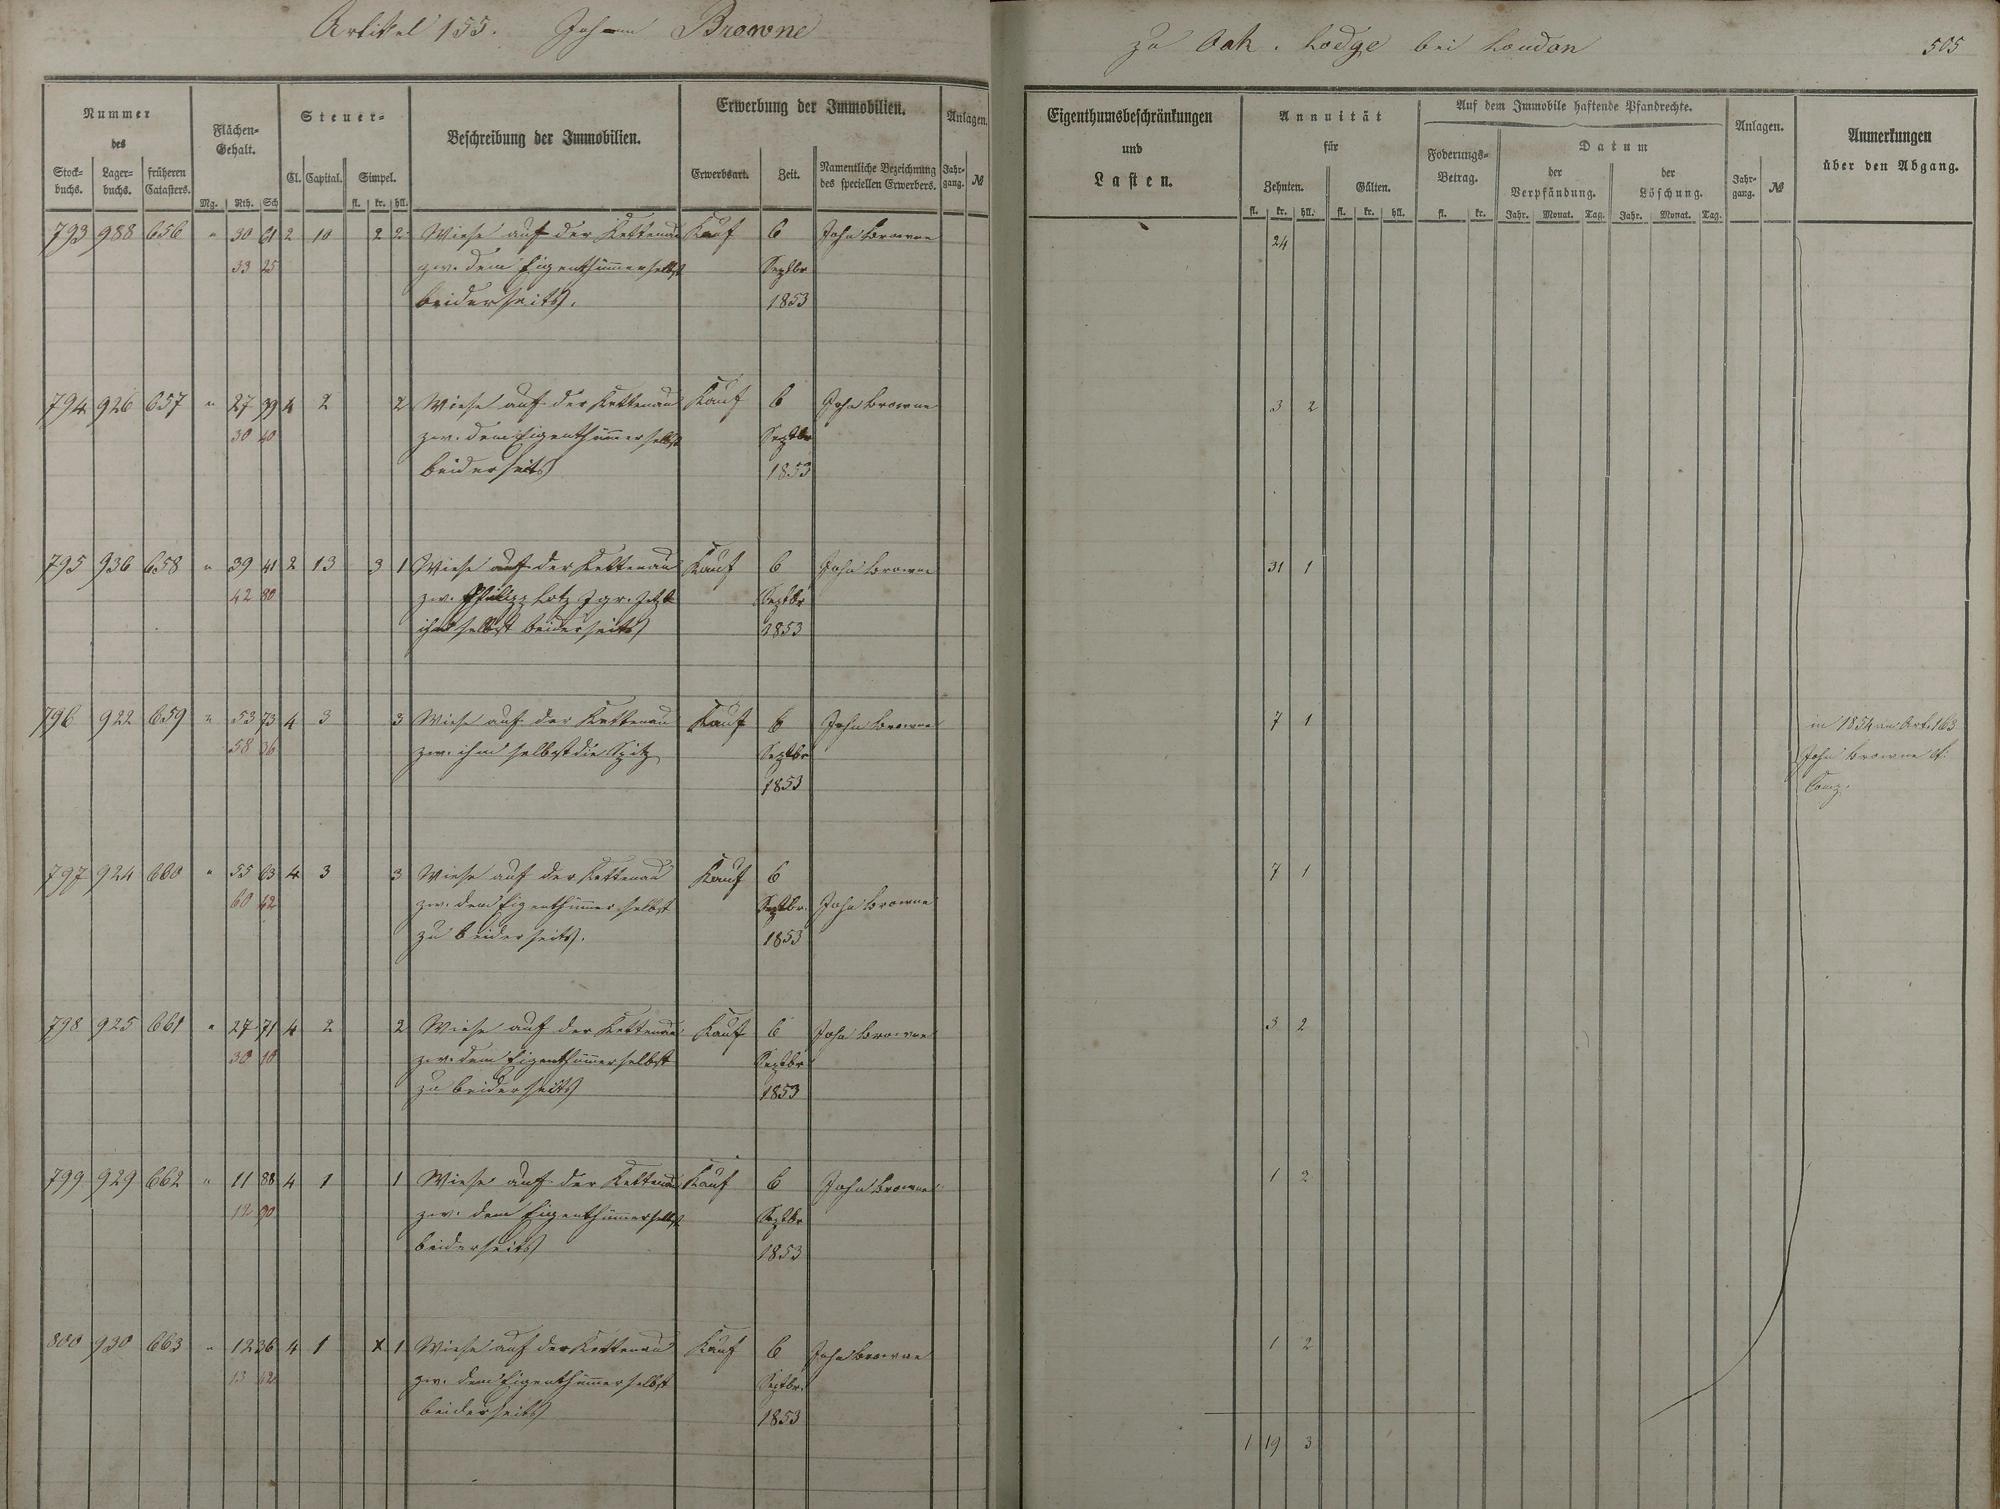 Artikel 155. Johann Browne
zu Oak. Lodge bei London
505
Nummer
des
Stock-
buchs.
Lager-
buchs.
früheren
Catasters.
Flächen-
Gehalt.
Mg. Rth. Sch
Steuer-
Cl. Capital. Simpel.
fl. kr. hll.
Beschreibung der Immobilien.
Erwerbung der Immobilien.
Erwerbsart. Zeit. Namentliche Bezeichnung
des speciellen Erwerbers.
Anlagen.
Jahr-
gang. №
Eigenthumsbeschränkungen
und
Lasten.
Annuität
für
Zehnten. Gülten.
fl. kr. hll. fl. kr. hll.
Auf dem Immobile haftende Pfandrechte.
Foderungs-
Betrag.
fl. kr.
Datum
der
Verpfändung.
der
Löschung.
Jahr. Monat. Tag. Jahr. Monat. Tag.
Anlagen.
Jahr-
gang. №
Anmerkungen
über den Abgang.
793 988 656 " 30 61 2 10 2 2 Wiese auf der Kettenau Kauf 6 John Browne 24
33 25 zw. dem Eigenthümer selbst Septbr
beiderseits. 1853
794 926 657 " 27 99 4 2 2 Wiese auf der Kettenau Kauf 6 John Browne 3 2
30 40 zw. dem Eigenthümer selbst Septbr
beiderseits 1853
795 936 658 " 39 41 2 13 3 1 Wiese auf der Kettenau Kauf 6 John Browne 31 1
42 80 zw. Philipp Lotz Jgr. jetzt Septbr
ihm selbst beiderseits 1853
796 922 659 " 53 73 4 3 3 Wiese auf der Kettenau Kauf 6 John Browne 7 1 in 1854 an Art. 163
58 36 zw. ihm selbst die Spitz Septbr John Browne &
1853 Comp.
797 924 660 " 55 63 4 3 3 Wiese auf der Kettenau Kauf 6 7 1
60 42 zw. dem Eigenthümer selbst Septbr. John Browne
zu beiderseits. 1853
798 925 661 " 27 71 4 2 2 Wiese auf der Kettenau Kauf 6 John Browne 3 2
30 10 zw. dem Eigenthümer selbst Septbr
zu beiderseits 1853
799 929 662 " 11 88 4 1 1 Wiese auf der Kettenau Kauf 6 John Browne 1 2
12 90 zw. dem Eigenthümer selbst Septbr
beiderseits 1853
800 930 663 " 12 36 4 1 x 1 Wiese auf der Kettenau Kauf 6 John Browne 1 2
13 42 zw. dem Eigenthümer selbst Septbr.
beiderseits 1853
1 19 3